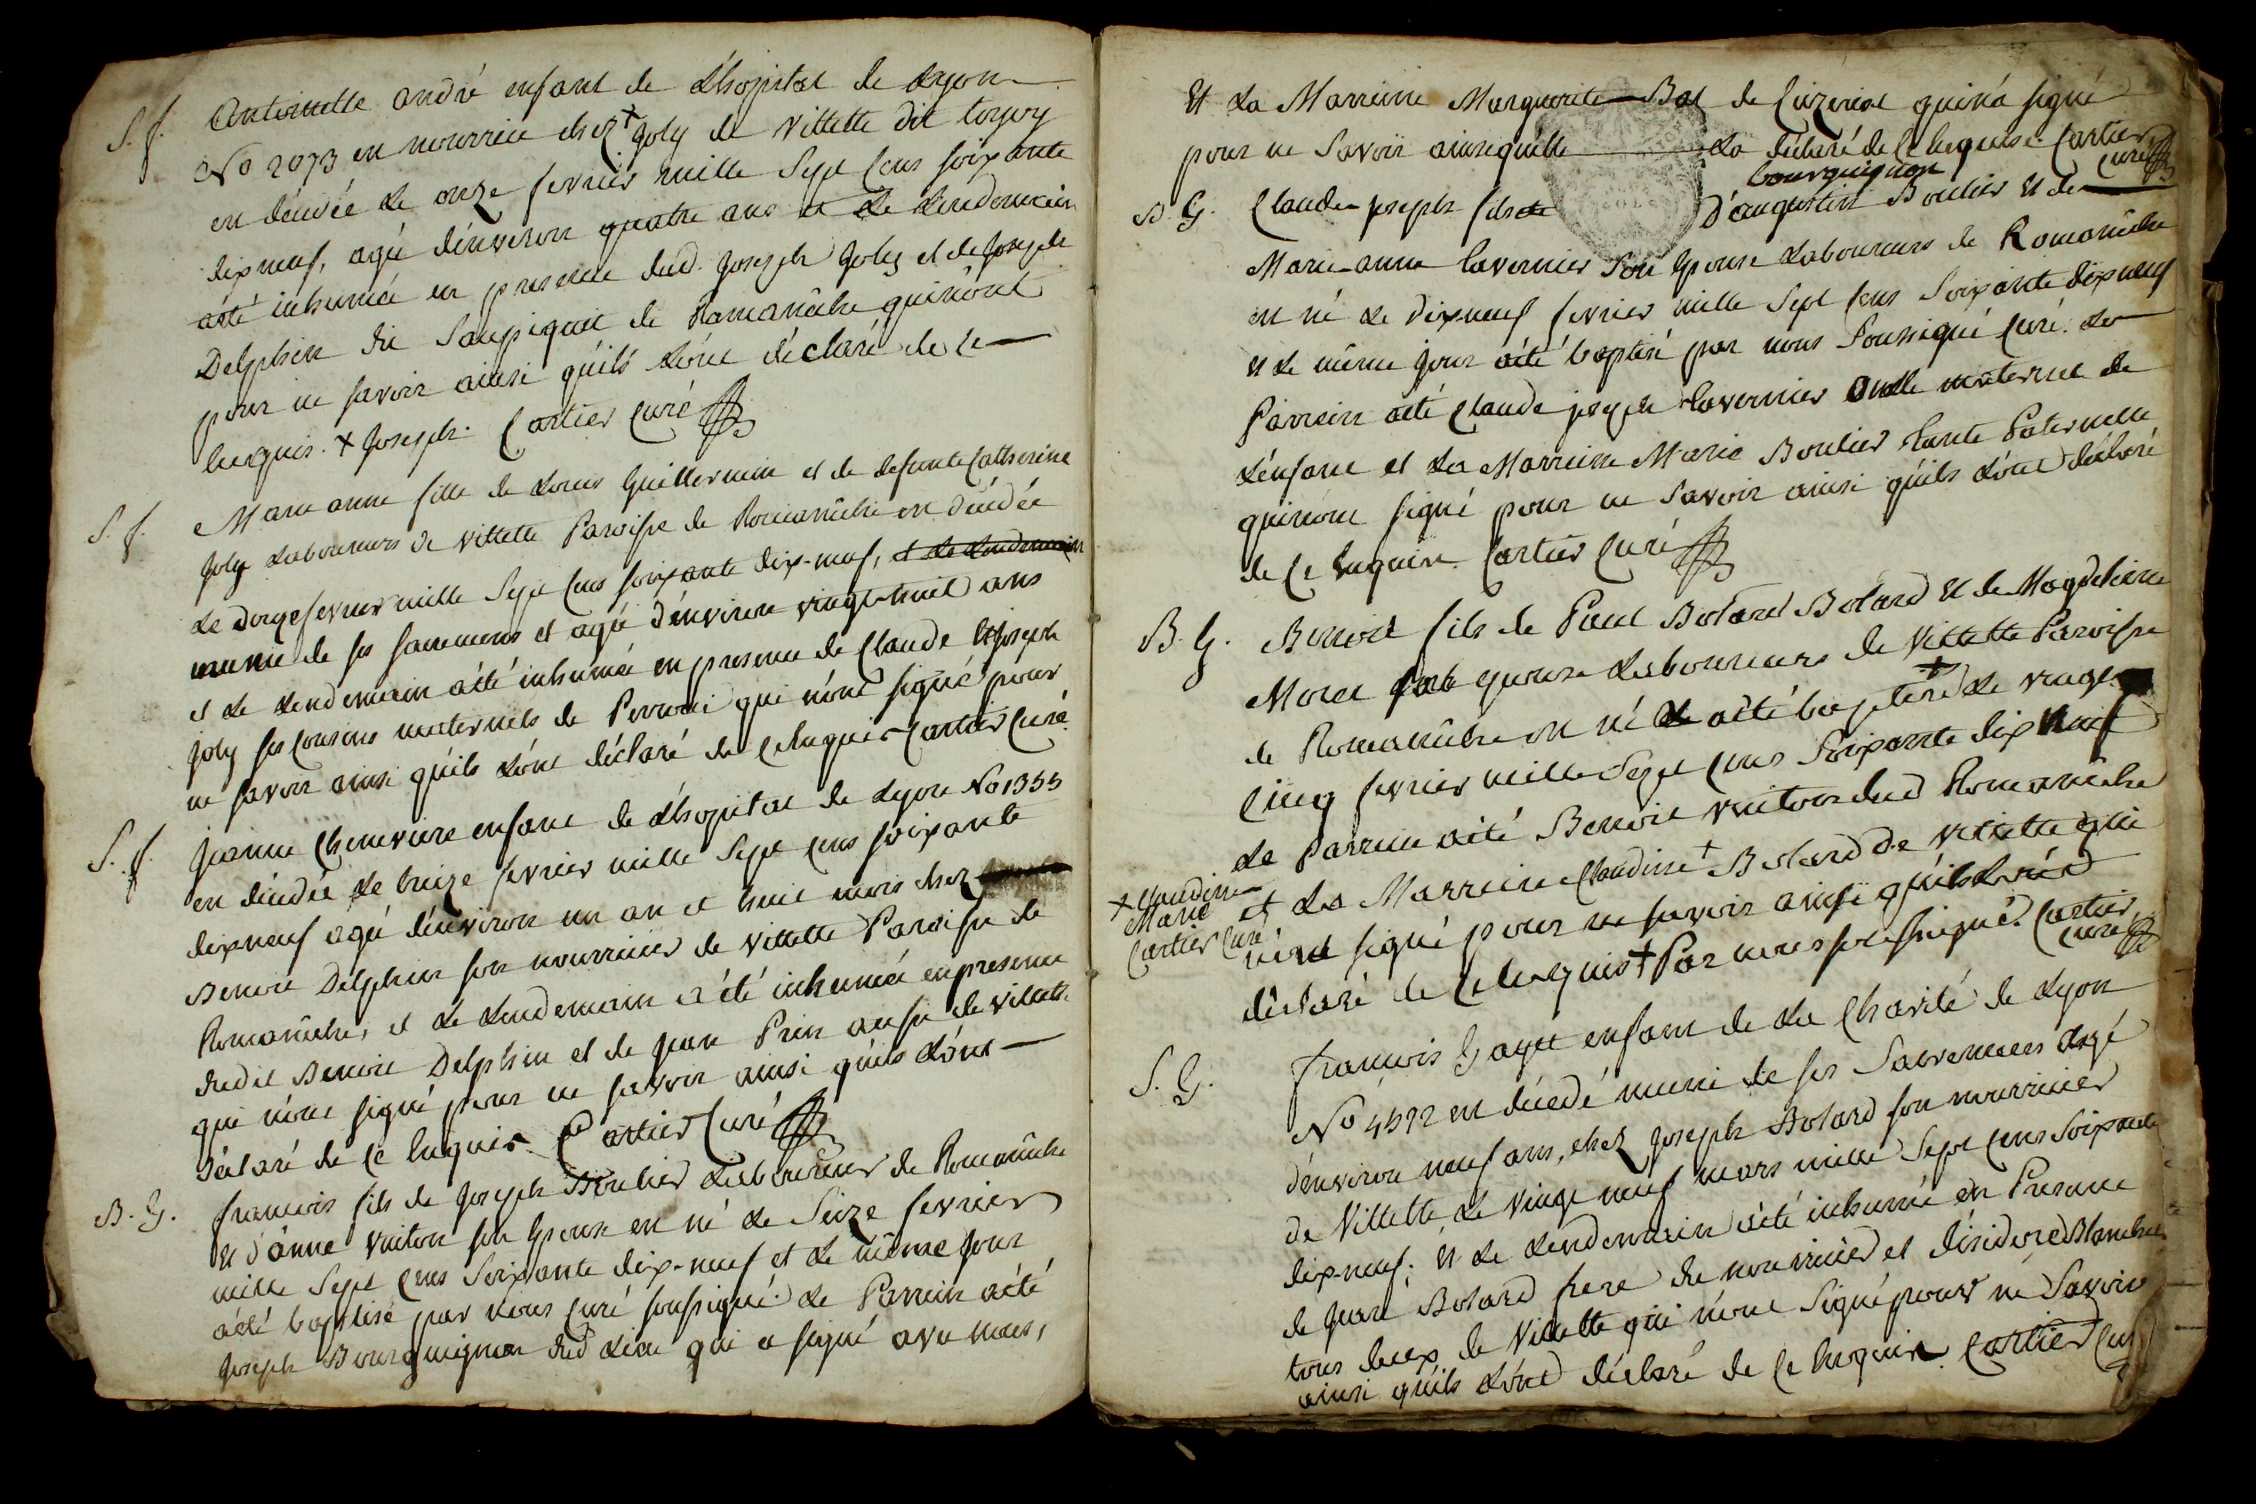 S. f. Antoinette andré enfant de L'hopital de Lyon
No 2073 en nourrice chez + Joly de villette dit
en décédée Le onze fevrier mille Sept Cens soixante
dixneuf, agée d'environ quatre ans et Le Lendemain
àété inhumée en presence dud. Joseph Joly et de Joseph
Delphin de Romanêche quin'ont
pour ne savoir ainsi qu'ils L'ont déclaré de ce
Enquis. + Joseph. Cartier Curé
S. f. Marie anne fille de Louis Guillermin et de defunte Catherine
Joly Laboureurs de villette Paroisse de Romanêche en décédée
Le douze fevrier mille Sept Cens soixante dix-neuf, et Le Lendemain
munie de ses sacremens et agée d'environ vingt-huit ans
et Le Lendemain àété inhumée en presence de Claude et Joseph
Joly ses cousins maternels de qui n'ont signé pour
ne savoir ainsi qu'ils L'ont déclaré de ce Enquis Cartier Curé
S. f. Jeanne Cheneviere enfant de L'hopital de Lyon No 1355
en décédée Le treize fevrier mille Sept Cens soixante
dixneuf agé d'environ un an et huit mois chez
Benoit Delphin son nourricier de villette Paroisse de
Romanêche, et Le Lendemain a été inhumée en presence
dudit Benoit Delphin et de Jean Prin aussi de villette
qui n'ont signé pour ne savoir ainsi qu'ils L'ont
déclaré de ce Enquis. Cartier Curé
B. G. francois fils de Joseph Boulier Laboureur de Romanêche
Et d'anne vuiton son Epouse en né Le Seize fevrier
mille Sept Cens Soixante dix-neuf et Le même Jour
àété baptisé par nous Curé soussigné. Le Parrein àété
Joseph Bourguignon dud Lieu qui a signé avec nous,
Et La Marreine Marguerite Bal de Cuzeriat quin'a signé
pour ne Savoir ainsiqu'elle La déclaré de Ce Enquise. Cartier
Curé
bourguignon
B. G. Claude joseph fils de D'augustin Boulier Et de
Marie-anne Tavernier Son Epouse Laboureurs de Romanêche
en né Le dixneuf fevrier mille Sept Cens Soixante dixneuf
Et Le même Jour àété baptisé par nous Soussigné Curé. Le
Parrein àété Claude joseph Tavernier Oncle maternel de
L'enfant et La Marreine Marie Boulier tante Paternelle
quin'ont signé pour ne Savoir ainsi qu'ils L'ont déclaré
de Ce Enquis. Cartier Curé
B. G. Benoit fils de Paul Botard Botard Et de Magdeleine
Morel son Epouse Laboureurs de Villette Paroisse
de Romanêche en né Le àété baptisé + Le vingt
Cinq fevrier mille Sept Cens Soixante dix neuf
Le Parrein àété Benoit vuiton dud Romanêche
et La Marreine Claudine + Botard de villette qui
+ Claudine
Marie
Cartier Curé
n'ont signé pour ne savoir ainsi qu'ils L'ont
déclaré de Ce Enquis + Par nous soussigné. Cartier
Curé
S. G. francois Gayet enfant de La Charité de Lyon
No en décédé muni de ses Sacremens Agé
d'environ neuf ans, chez Joseph Botard son nourricier
de Villette Le vingt neuf mars mille Sept Cens Soixante
dix-neuf; Et Le Lendemain àété inhumé en Presence
de Jean Botard frere du nourricier et disidore
tous deux de Villette qui n'ont Signé pour ne Savoir
ainsi qu'ils L'ont déclaré de Ce Enquis. Cartier Curé